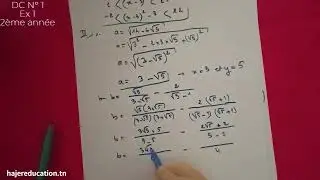 DC N° 1
Ex 1
2ème année
-2 < (x-3)² - 3 < 22
II
a = √(14-6√5)
= √(3² - 2×3×√5 + (√5)²)
= √((3-√5)²)
a = 3 - √5 → x = 3 et y = 5
b = √5/(3-√5) - 2/(√5-1)
b = √5(3+√5)/((3-√5)(3+√5)) - 2(√5+1)/((√5-1)(√5+1))
b = (3√5+5)/(9-5) - (2√5+2)/(5-1)
b = - 4
hajereducation.tn